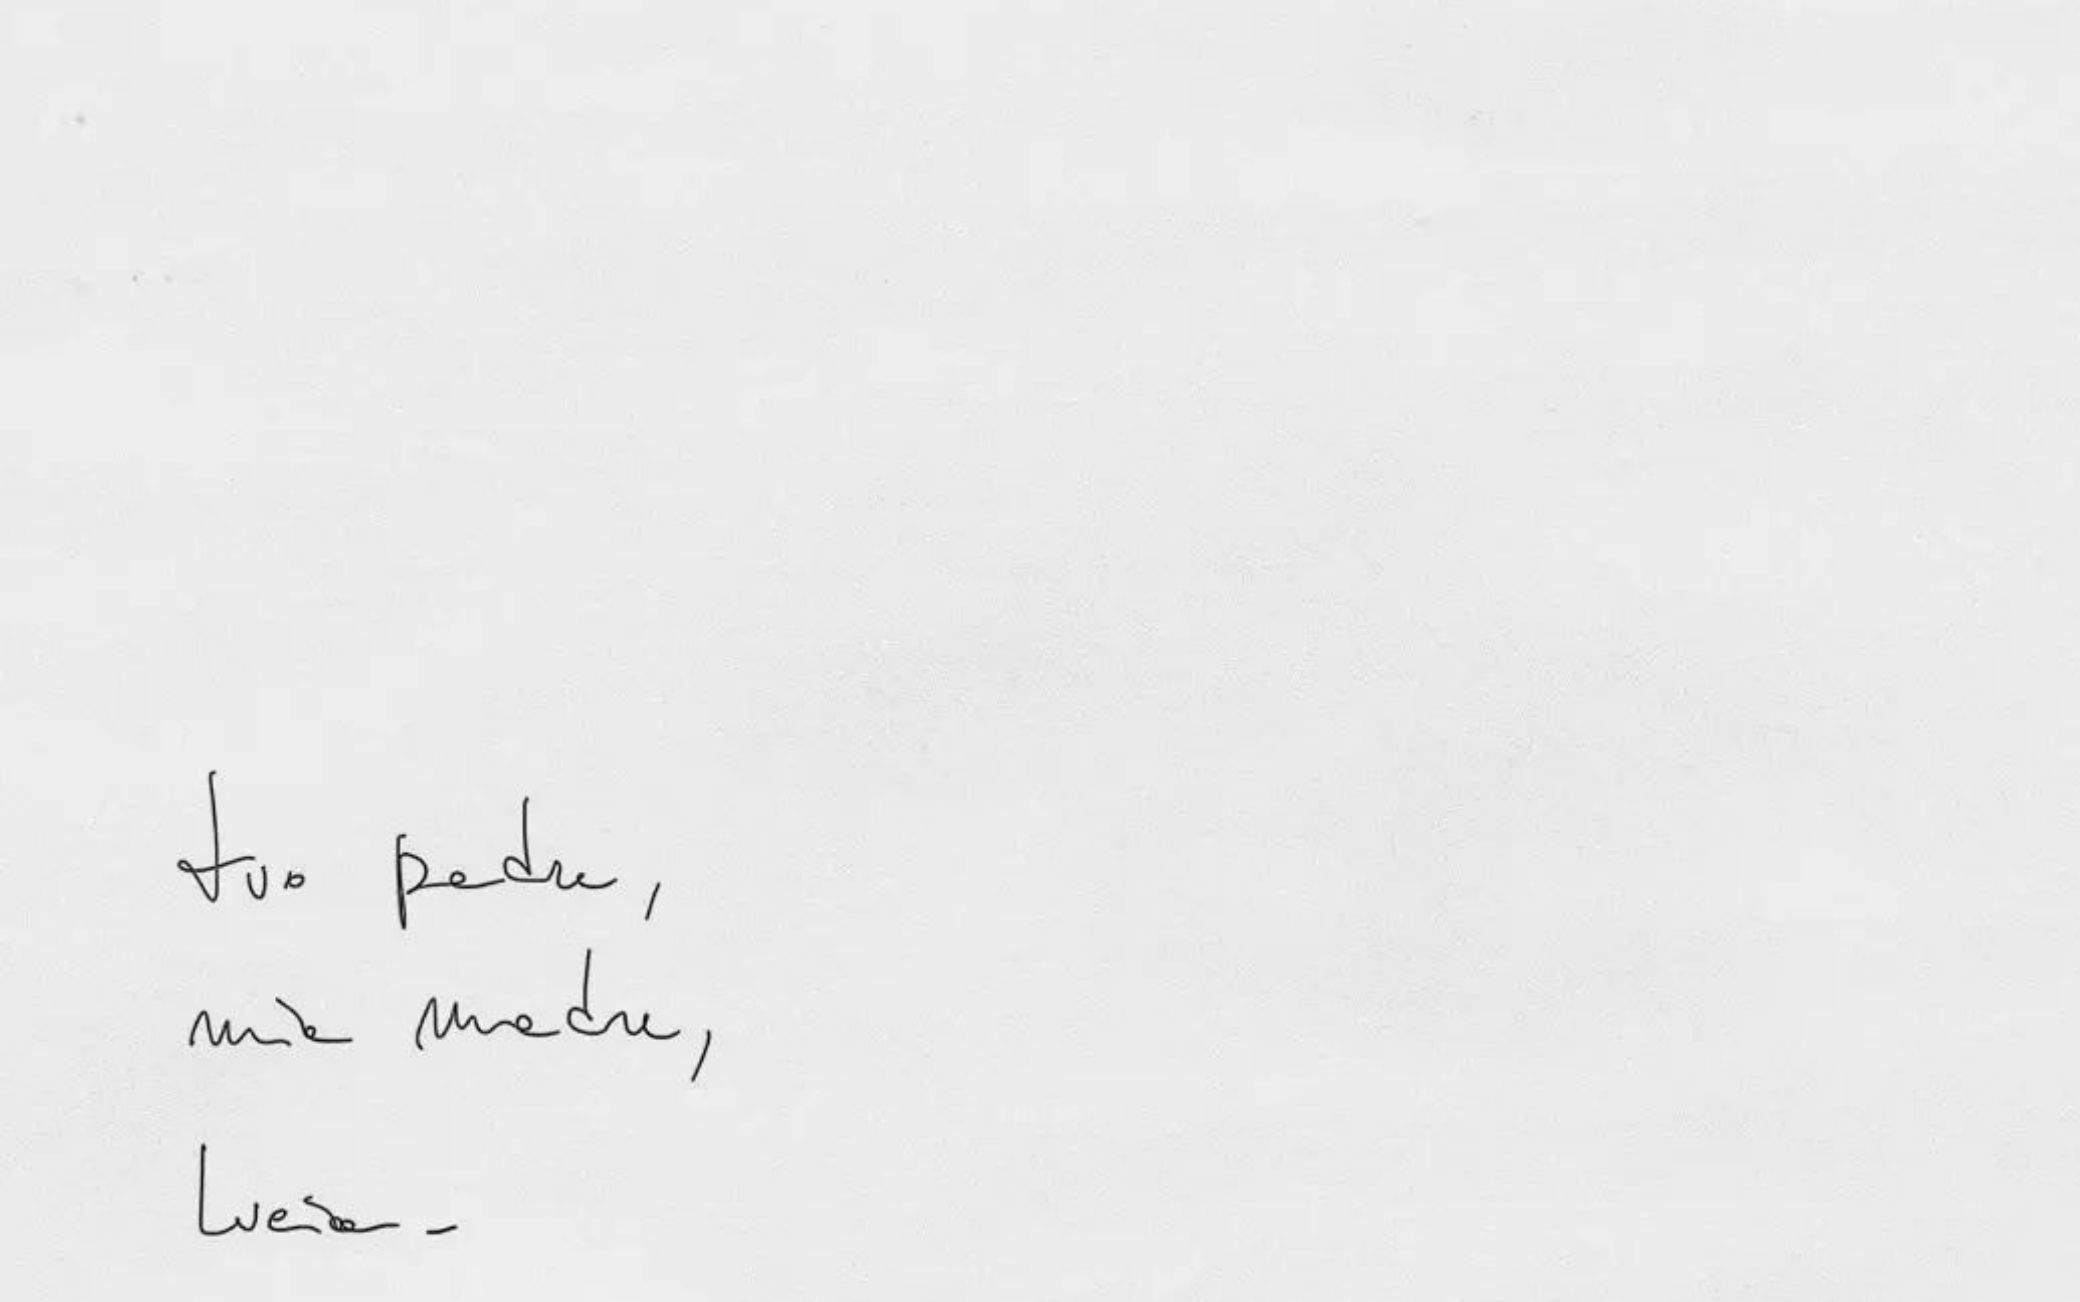 tuo padre,
mia madre,
Lucia -